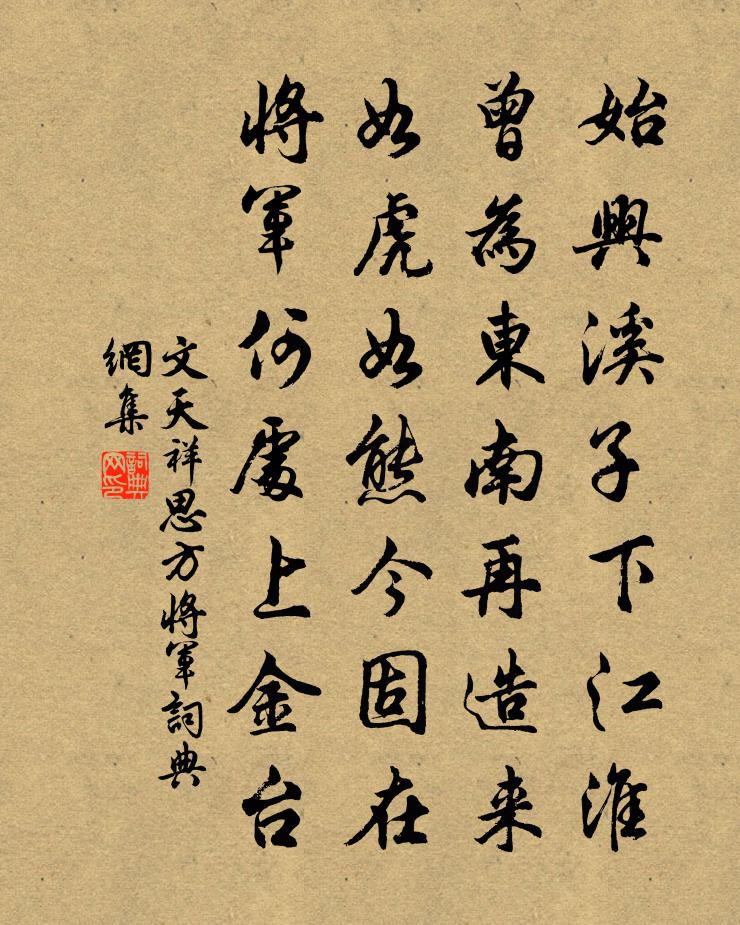 始興溪子下江淮
曾為東南再造来
如虎如熊今固在
將軍何處上金台
文天祥思方將軍詞典
網集
詞典网印